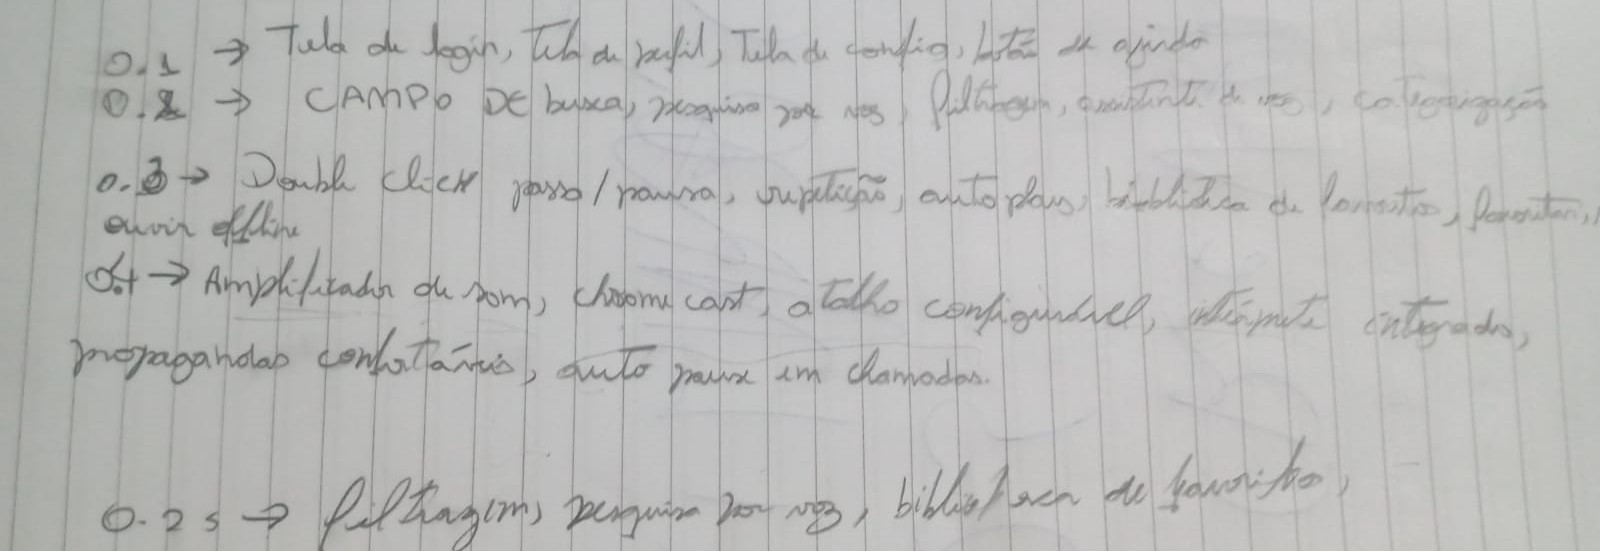 0.1 → Tela de login, Tela de perfil, Tela de config, botão de ajuda
0.2 → CAMPO DE busca, pesquisa por voz, filtragem, assistente de voz, categorização
0.3 → Double click passa/pausa, repetição, autoplay, biblioteca de favoritos, favoritar,
ouvir offline
0.4 → Amplificador de som, chromecast, atalho configurável, intérprete integrado,
propagandas confortáveis, auto pause em chamadas.
0.2s → filtragem, pesquisa por voz, biblioteca de favoritos,